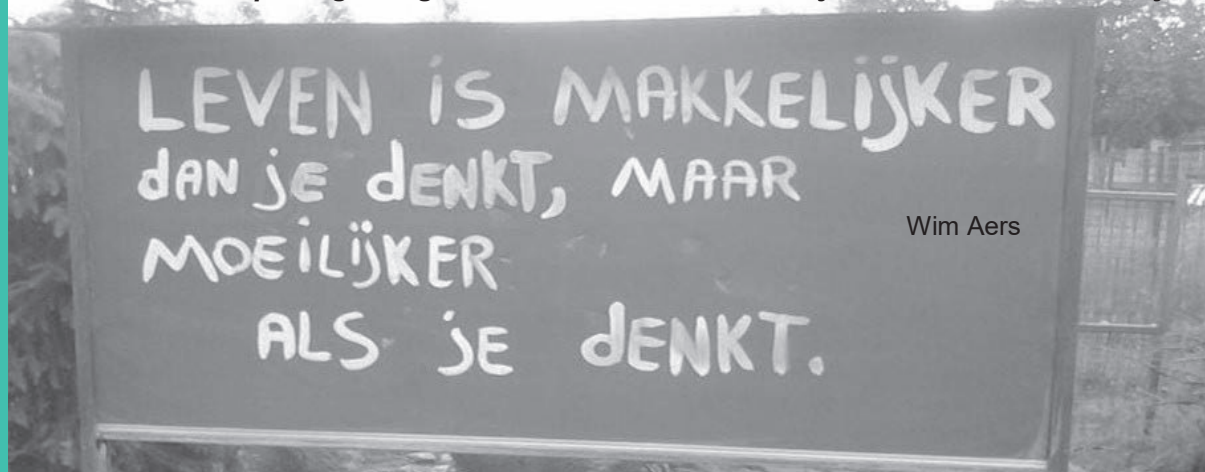 LEVEN is MAKKELijKER
dAN jE dENKT, MAAR
MOEiLijKER
ALS jE dENKT.
Wim Aers